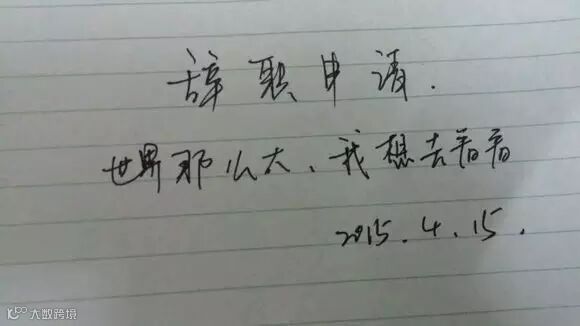 辞职申请.
世界那么大、我想去看看
2015.4.15.
大数跨境